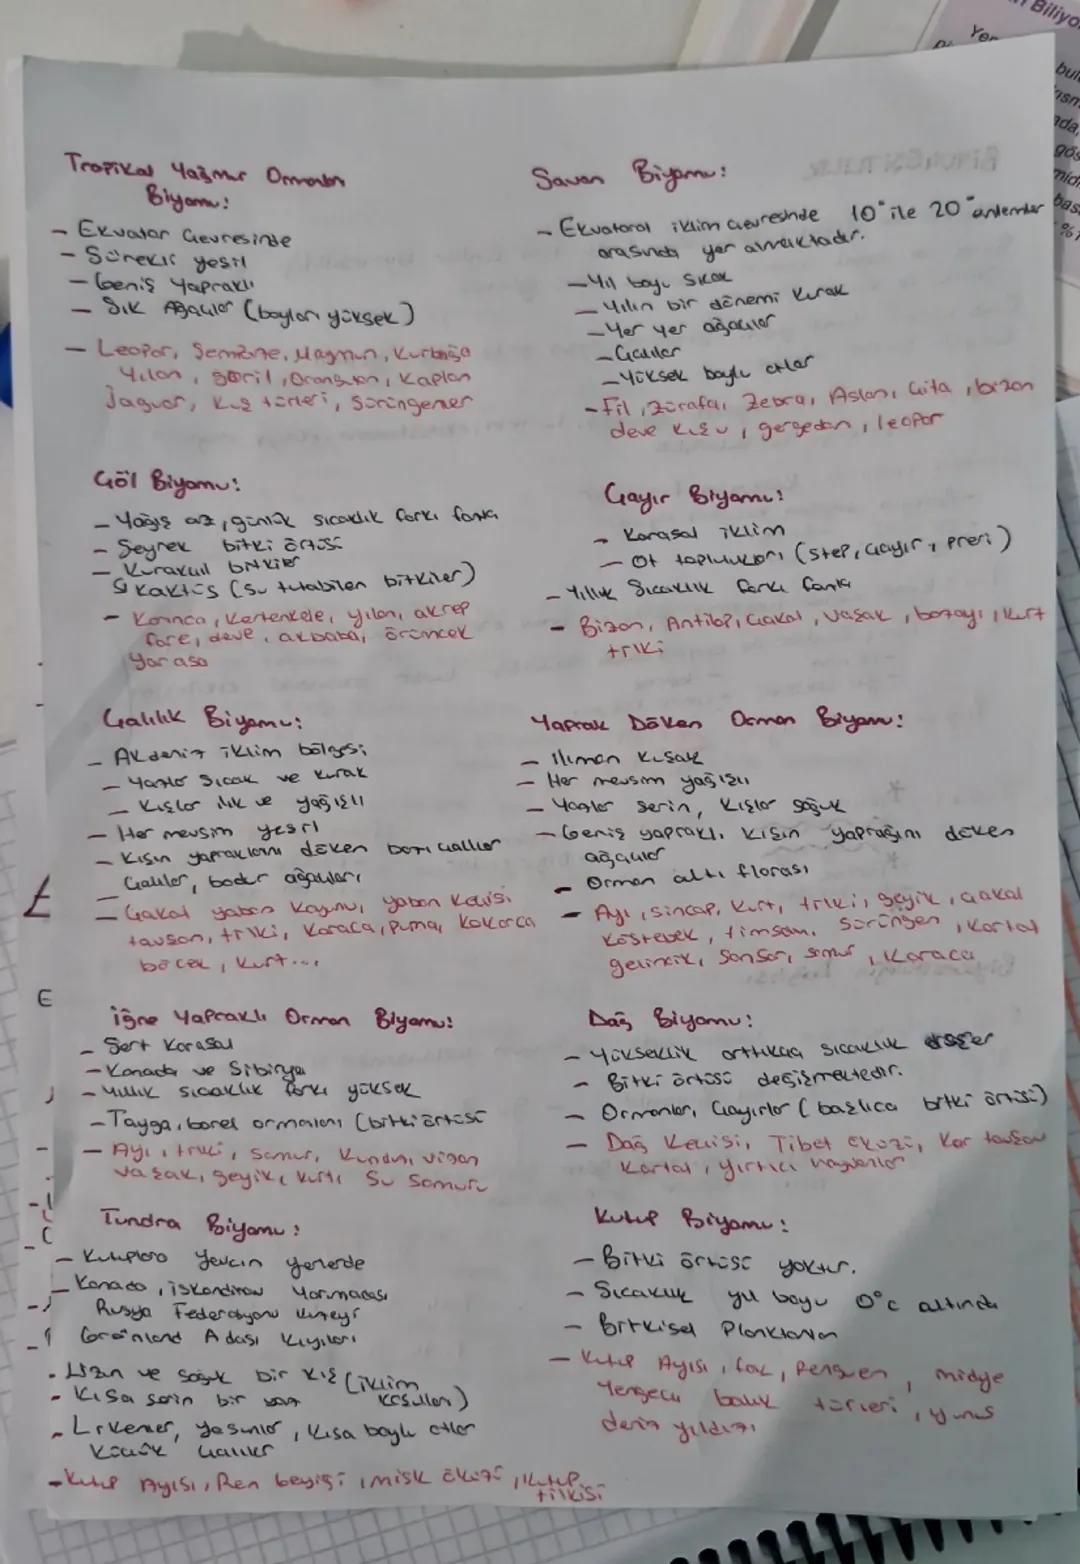 Tropikal Yağmur Ormanları
Biyomu:
- Ekvator Çevresinde
- Sürekli yeşil
- Geniş Yapraklı
- Sık Ağaçlar (boyları yüksek)
- Leopar, Şempanze, Maymun, Kurbağa
Yılan, goril, Orangutan, Kaplan
Jaguar, Kuş türleri, Sürüngenler
Savan Biyomu:
- Ekvatoral iklim çevresinde 10° ile 20° enlemler
arasında yer almaktadır.
- Yıl boyu sıcak
- Yılın bir dönemi kurak
- Yer yer ağaçlar
- Çalılar
- Yüksek boylu otlar
- Fil, Zürafa, Zebra, Aslan, Çita, bizon
deve kuşu, gergedan, leopar
Çöl Biyomu:
- Yağış az, günlük sıcaklık farkı fazla
- Seyrek bitki örtüsü
- Kurakçıl bitkiler
Kaktüs (Su tutabilen bitkiler)
- Karınca, Kertenkele, yılan, akrep
fare, deve, akbaba, örümcek
Yarasa
Çayır Biyomu:
- Karasal iklim
- Ot toplulukları (step, çayır, preri)
- Yıllık Sıcaklık farkı fazla
- Bizon, Antilop, Çakal, vaşak, bozayı, kurt
tilki
Çalılık Biyomu:
- Akdeniz iklim bölgesi
- Yazlar Sıcak ve Kurak
- Kışlar ılık ve yağışlı
- Her mevsim yeşil
- Kışın yapraklarını döken bazı çalılar
- Çalılar, bodur ağaçları
- Çakal yaban koyunu, yaban Keçisi
tavşan, tilki, Karaca, Puma, Kokarca
böcek, Kurt...
Yaprak Döken Orman Biyomu:
- Ilıman Kuşak
- Her mevsim yağışlı
- Yazlar serin, Kışlar soğuk
- Geniş yapraklı, Kışın yaprağını döken
ağaçlar
- Orman altı florası
- Ayı, Sincap, Kurt, tilki, geyik, Çakal
Köstebek, timsah, Sürüngen, Kartal
gelincik, Sansar, samur, Karaca
İğne Yapraklı Orman Biyomu:
- Sert Karasal
- Kanada ve Sibirya
- Yıllık sıcaklık farkı yüksek
- Tayga, borel ormanları (bitki örtüsü
- Ayı, tilki, Samur, Kunduz, vizon
vaşak, geyik, kurt, Su Samuru
Dağ Biyomu:
- Yükseklik arttıkça sıcaklık düşer
- Bitki örtüsü değişmektedir.
- Ormanlar, Çayırlar (başlıca bitki örtüsü)
- Dağ Keçisi, Tibet Öküzü, Kar tavşanı
Kartal, yırtıcı hayvanlar
Tundra Biyomu:
- Kutuplara Yakın yerlerde
- Kanada, İskandinav Yarımadası
Rusya Federasyonu kuzeyi
Grönland Adası kıyıları
- Uzun ve Soğuk bir Kış (iklim
- Kısa serin bir yaz koşulları)
- Likenler, Yosunlar, Kısa boylu otlar
Küçük Çalılar
- Kutup Ayısı, Ren geyiği, misk öküzü, Kutup
tilkisi
Kutup Biyomu:
- Bitki örtüsü yoktur.
- Sıcaklık yıl boyu 0°c altında
- Bitkisel Planktonlar
- Kutup Ayısı, fok, Penguen, midye
Yengeç, balık türleri, yunus
deniz yıldızı